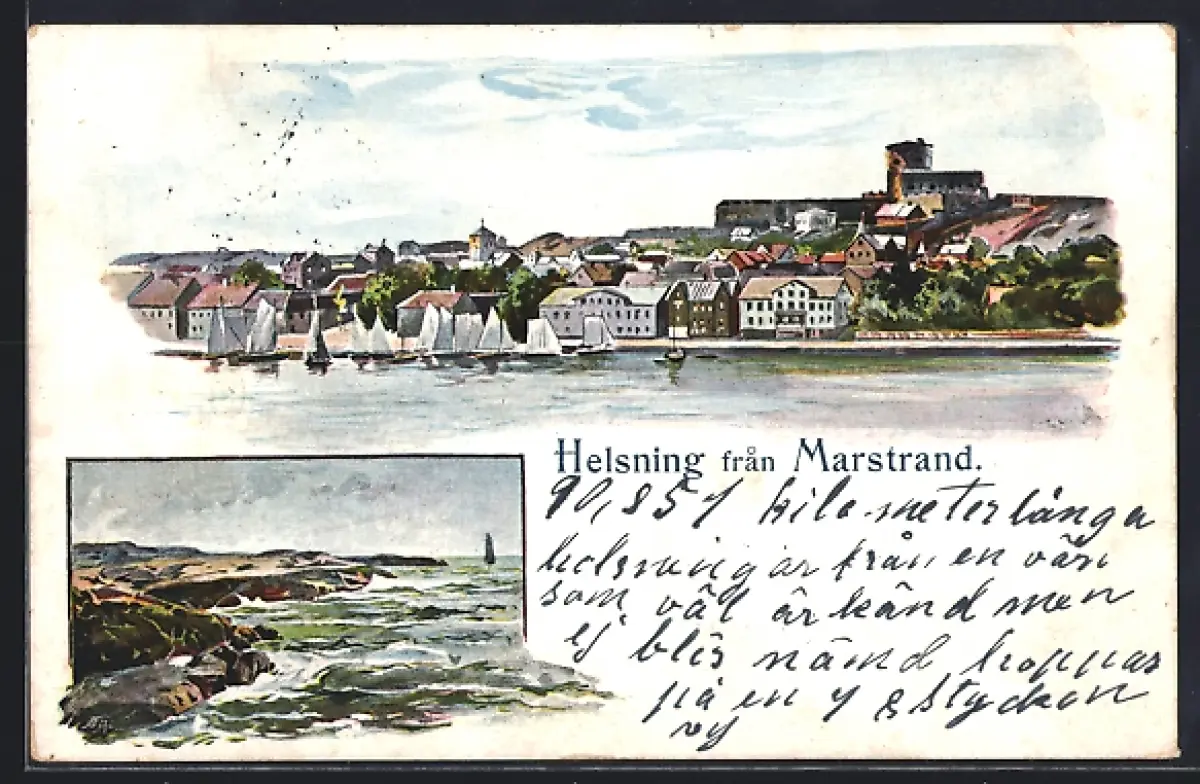 Helsning från Marstrand.
90,857 kilometerlånga
helsningar från en vän
som väl är känd men
ej blir nämd hoppas
på en y stycken
vy